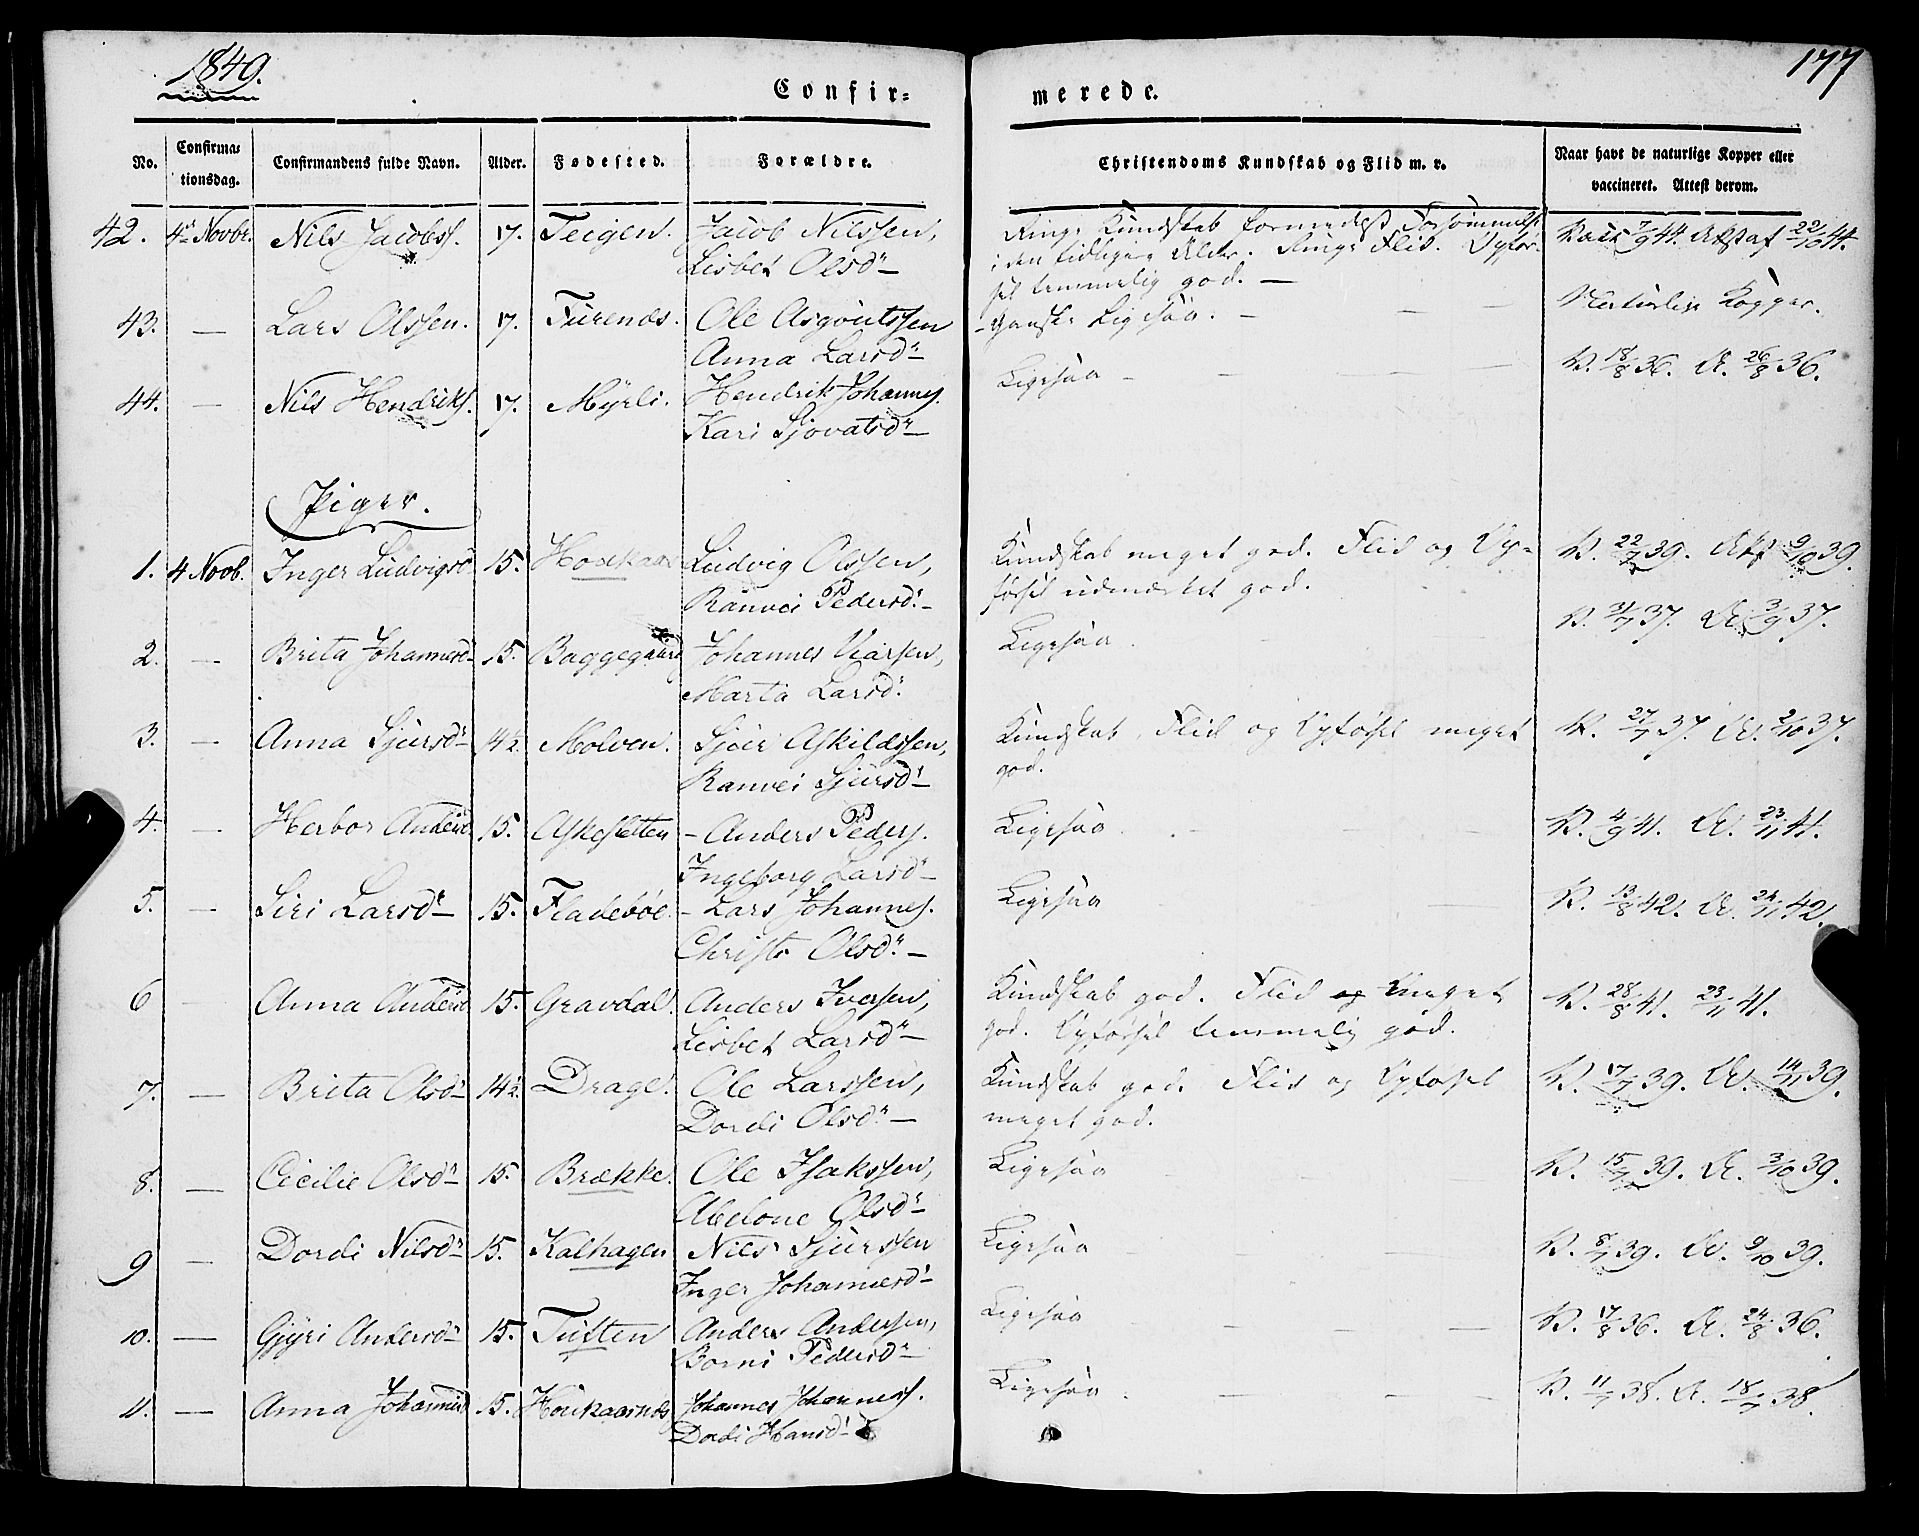 1849.
177
Confir= merede.
No. Confirmationsdag. Confirmandens fulde Navn. Alder. Fødested. Forældre. Christendoms Kundskab og Flid m. v. Naar havt de naturlige Kopper eller vaccineret. Attest derom.
42. 4de Novbr. Nils Jacobs. 17. Teigen. Jacob Nilssen, Ringe Kundskab formedelst Forsømmelse Vacc 7/9 44. Attest af 22/10 44.
Lisbet Olsdr — i den tidligere Alder. Ringe Flid. Opfør-
sel temmelig god. —
43. — Lars Olssen. 17. Furenæs. Ole Asgoutssen Ganske Ligesaa. — Naturlige Kopper.
Anna Larsdr —
44. — Nils Hendriks. 17. Myrli. Hendrik Johannes. Ligesaa — V. 18/8 36. A. 26/8 36.
Kari Sjovatsdr —
Piger.
1. 4 Novb. Inger Ludvigsd 15. Houkaas Ludvig Olssen, Kundskab meget god. Flid og Op- V. 22/7 39. Att 9/10 39.
Ranvei Pedersdr. — førsel udmærket god.
2. — Brita Johannesdr 15. Baggegaard Johannes Ivarsen, Ligesaa. V. 31/7 37. A. 3/9 37.
Marta Larsd.
3. — Anna Sjursdr 14½ Molven. Sjur Askildssen, Kundskab, Flid og Opførsel meget V. 27/7 37. A. 2/10 37.
Ranvei Sjursdr — god.
4. — Herbor Andersd 15. Askesletten — Anders Peders. Ligesaa. V. 4/9 41. A. 23/11 41.
Ingeborg Larsdr —
5. — Siri Larsdr — 15. Fladebøe. — Lars Johannes. Ligesaa V. 13/8 42. A. 24/11 42.
Christi Olsdr. —
6 Anna Andersd 15. Gravdal. Anders Iversen, Kundskab god. Flid og meget V. 28/8 41. 23/11 41.
Lisbet Larsdr — god. Opførsel temmelig god.
7. — Brita Olsdr 14½ Drage. Ole Larssen, Kundskab god. Flid og Opførsel V. 17/7 39. A. 14/11 39.
Dordi Olsdr. — meget god.
8. — Cicilie Olsdr 15. Brække. Ole Isakssen, Ligesaa V. 15/7 39. A. 3/10 39.
Abelone Olsdr —
9 — Dordi Nilsdr 15. Kalhagen Nils Sjurssen Ligesaa V. 8/7 39. A. 9/10 39.
Inger Johannesdr
10. — Gjyri Andersdr 15. Tuften Anders Andersen, Ligesaa V. 17/8 36. A. 24/8 36.
Borni Pedersdr
11. — Anna Johannesd 15. Houkaasnæs Johannes Johanness. Ligesaa. V. 11/7 38. A. 18/7 38.
Dordi Hansdr